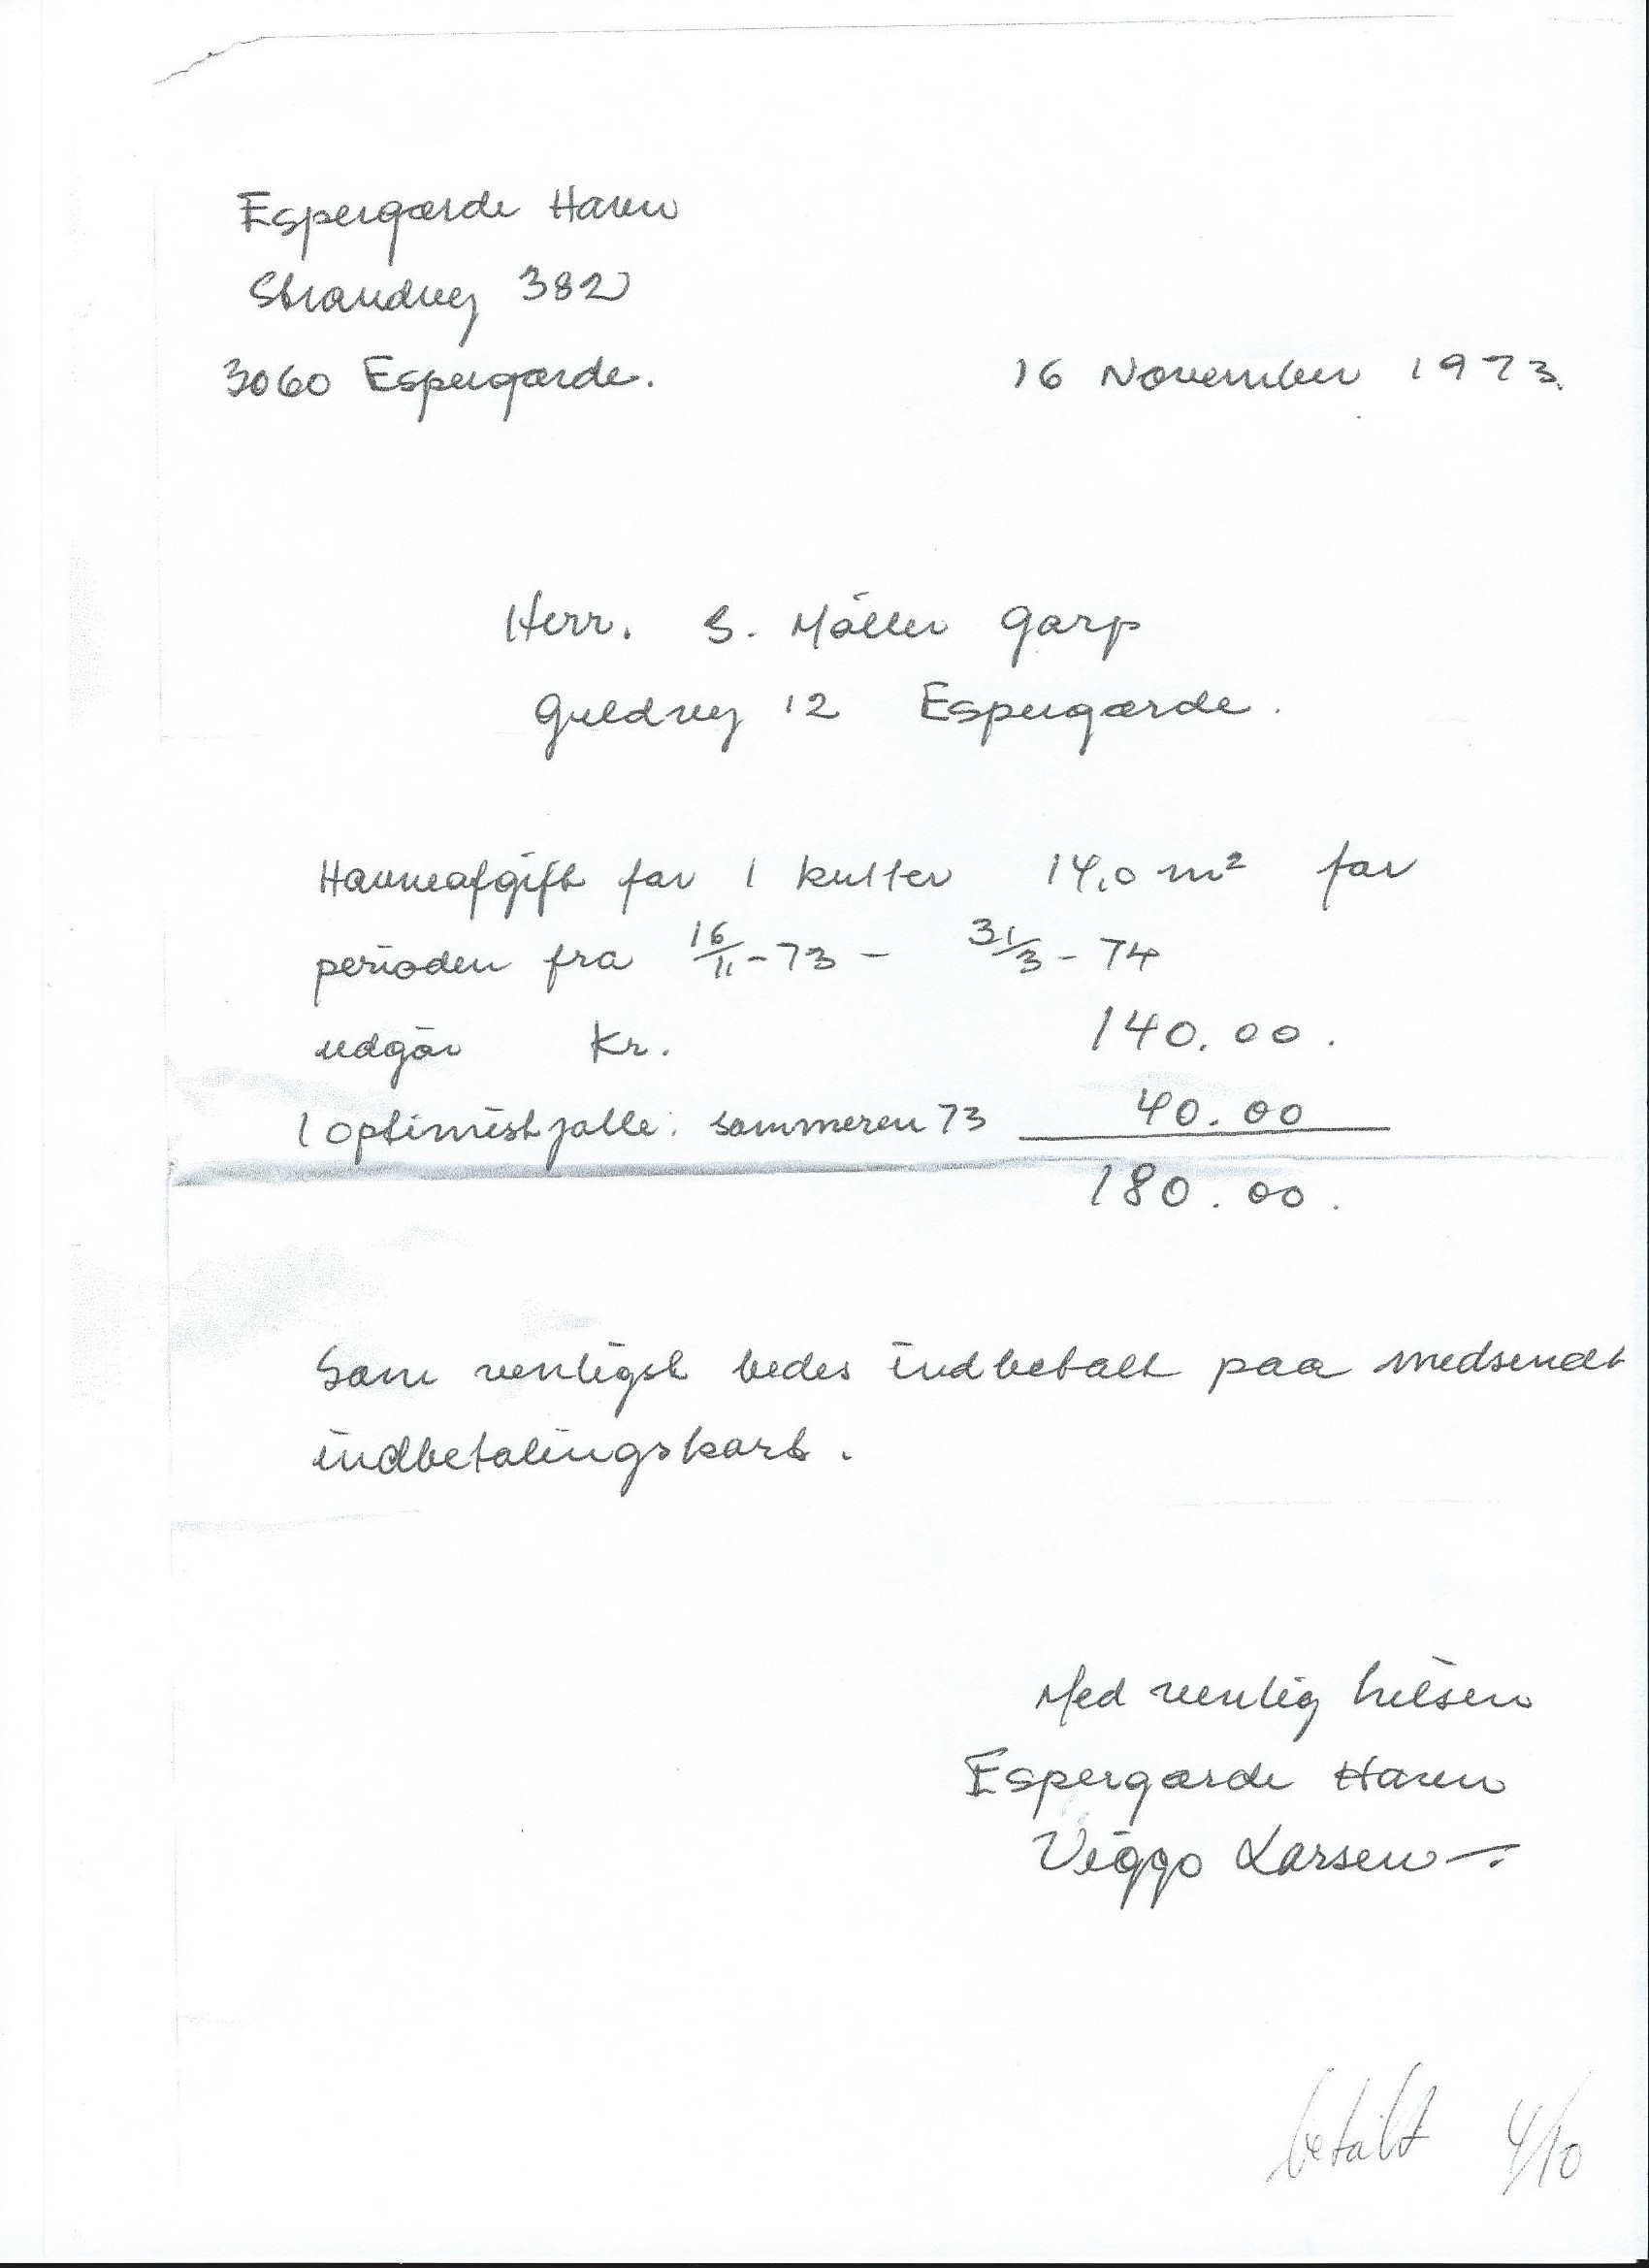 Espergærde Havn
Strandvej 382
3060 Espergærde.
16 November 1973.
Herr. S. Möller Garp
Guldvej 12 Espergærde.
Havneafgift for 1 kutter 14,0 m² for
perioden fra 16/11-73 - 31/3-74
udgør Kr. 140.00.
1 optimistjolle. sommeren 73 40.00
180.00.
Som venligst bedes indbetalt paa medsendt
indbetalingskort.
Med venlig hilsen
Espergærde Havn
Viggo Larsen
betalt 4/10